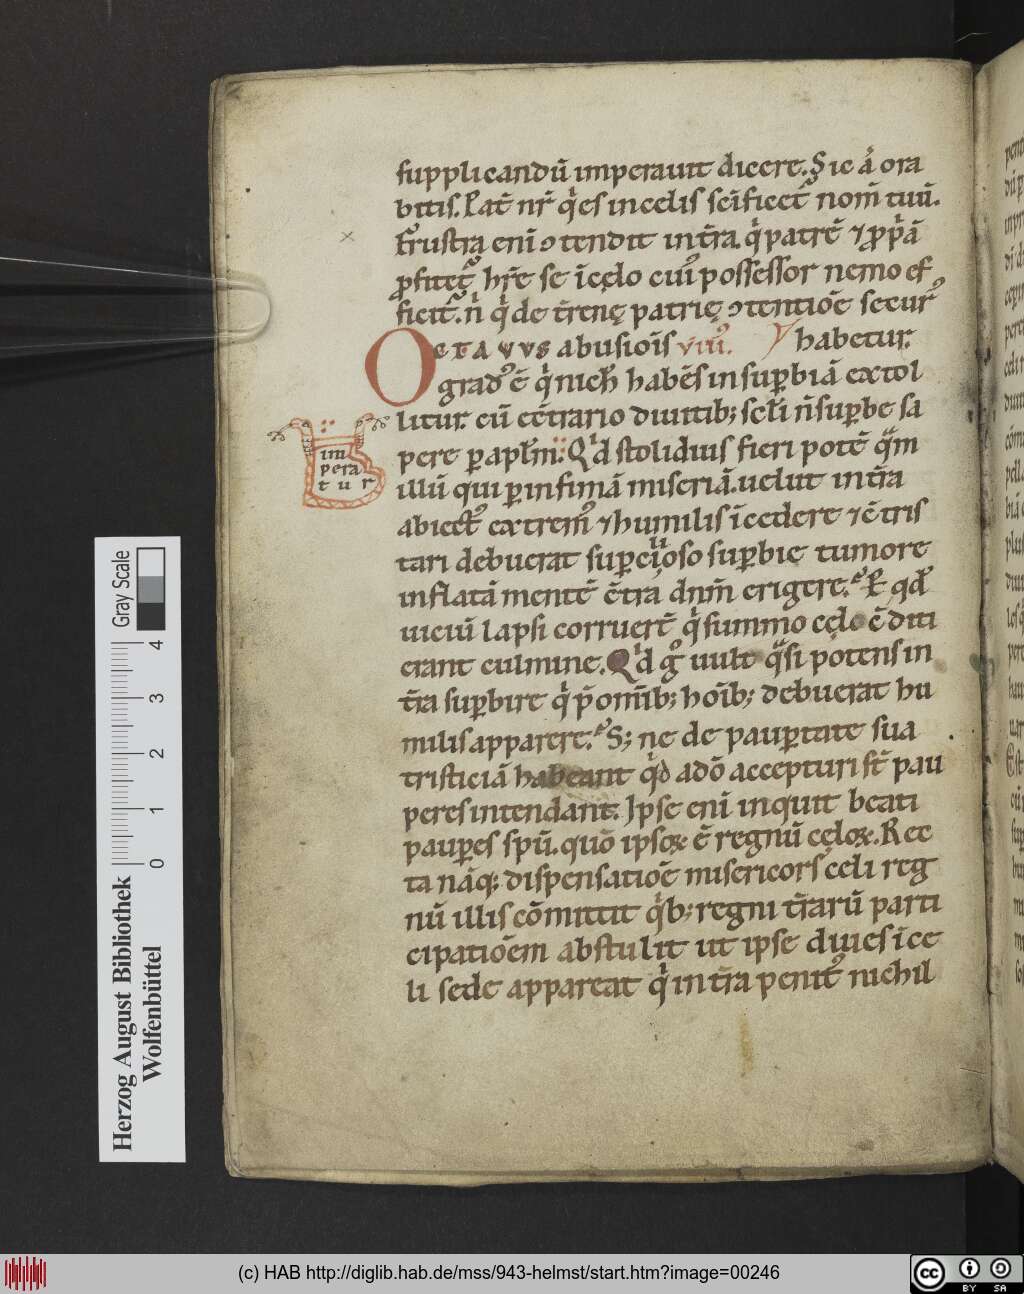 supplicandū imperauit dicere. Sic ꝗ ora
bitis. Pat̄ nr̄ q̍ es in celis sc̄ificet᷑ nom̄ tuū.
Frustra eni ↄtendit in t̄ra q̍ patrē ⁊ pp̍ā
ꝓfitet᷑ hr̄e se ī cęlo cui᷒ possessor nemo ef
ficit᷑. n̍ q̍ de t̄renę patrię ↄtentiōe secur᷒
OCTAVVS abusiōis viii᷒. habetur.
grad᷒ ē q̍ nich̄ habēs in suꝑbiā extol
litur. cū ec̄trario diuitib; sc̄li n̄ suꝑbe sa
pere ꝑ apl̄m. Qd̍ stolidius fieri potē qͣm
illū qui ꝑ infimā miseriā. uelut in t̄ra
abiect᷒ extrem᷒ ⁊ humilis īcedere ⁊ ↄ̄tris
tari debuerat suꝑciłioso suꝑbie tumore
inflatā mentē ↄ̄tra dn̄m erigere. P qd̄
uiciū lapsi corruert̄ q̍ summo cęlo ↄ̄diti
erant culmine. Qd̍ gͦ uult qͣsi potens in
t̄ra suꝑbire q̍ p̄ om̄ib; hoīb; debuerat hu
milis apparere. S; ne de pauꝑtate sua
tristiciā habeant qd̍ a dō accepturi st̄ pau
peres intendant. Ipse eni inquit beati
pauꝑes spū. quō ipsoꝝ ē regnū cęloꝝ. Rec
ta nāq; dispensatiōe misericors celi reg
nū illis cōmittit q̍b; regni t̄rarū parti
cipatiōem abstulit ut ipse diues ī ce
li sede appareat q̍ in t̄ra penit᷒ nichil
im
pera
tur
Gray Scale
4
3
2
1
0
Herzog August Bibliothek
Wolfenbüttel
(c) HAB http://diglib.hab.de/mss/943-helmst/start.htm?image=00246
cc BY SA